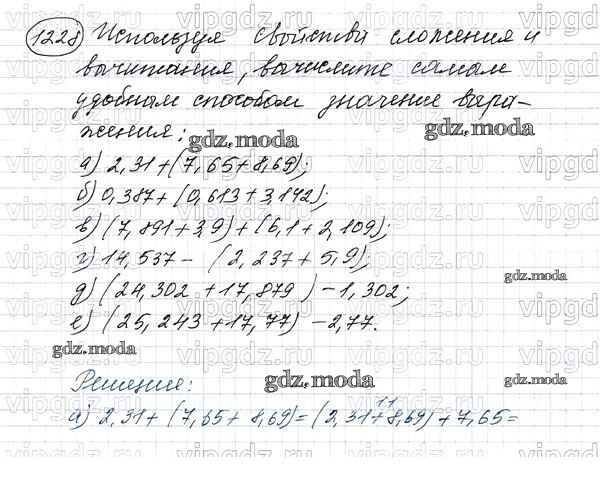 1228 Используя свойства сложения и
вычитания, вычислите самым
удобным способом значение выра-
жения:
gdz.moda
gdz.moda
а) 2,31+(7,65+8,69);
б) 0,387+(0,613+3,142);
в) (7,891+3,9)+(6,1+2,109);
г) 14,537-(2,237+5,9);
gdz.moda
д) (24,302+17,879)-1,302;
е) (25,243+17,77)-2,77.
gdz.moda
Решение:
gdz.moda
gdz.moda
а) 2,31+(7,65+8,69)=(2,31+8,69)+7,65=